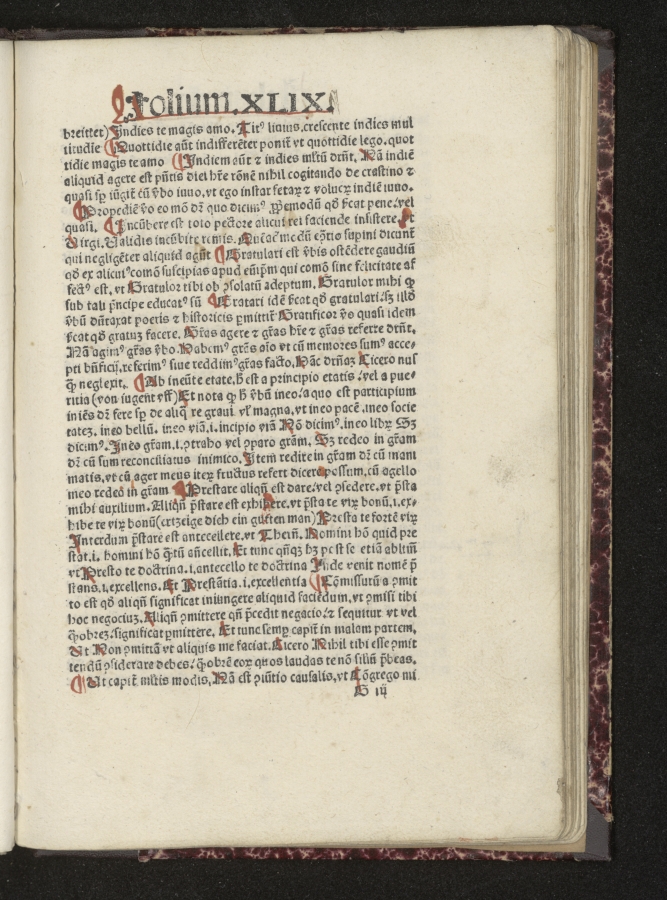 Foliuм.XLIX.
breittet) Indies te magis amo. Titꝰ liuius. crescente indies mul
titudie Quottidie aūt indifferēter ponit̄ vt quottidie lego. quot
tidie magis te amo Indiem aūt ⁊ indies mltū drn̄t. Nā indiē
aliquid agere est pn̄tis diei hr̄e rōnē nihil cogitando de crastino ⁊
quasi sp̄ iūgit̄ cū v̄bo iuuo. vt ego instar fetaꝝ ⁊ volucꝝ indiē iuuo.
Propediē v̄o eo mō dr̄ quo dicimꝰ ꝓpemodū qd̄ ſcat pene. vel
quasi. Incūbere est toto pectore alicui rei faciende insistere. Et
Virgi. Validis incūbite remis. Ancāc medū ꝯtio supini dicant̄
qui negligēter aliquid agūt Gratulari est v̄bis ostēdere gaudiū
qd̄ ex alicuiꝰ cōmo suscipias apud eūip̄m qui comō sine felicitate af
fectꝰ est. vt Gratulor tibi ob ꝯsolatū adeptum. Gratulor mihi ꝙ
sub tali pn̄cipe educatꝰ sū Gratari idē ſcat qd̄ gratulari. sꝫ illd̄
v̄bū dūtaxat poetis ⁊ historicis ꝑmittit̄ Gratificor v̄o quasi idem
ſcat qd̄ gratuꝫ facere. Gr̄as agere ⁊ gr̄as hr̄e ⁊ gr̄as referre drn̄t.
Nā agimꝰ gr̄as v̄bo. Habemꝰ grēs aīo vt cū memores sumꝰ acce-
pti bn̄ficij. referimꝰ siue reddimꝰ gr̄as facto. Hāc dr̄n̄aꝫ Cicero nus
q̄ neglexit. Ab ineūte etate. h̄ est a principio etatis. vel a pue-
ritia (von iugent vff) Et nota ꝙ h̄ v̄bū ineo. a quo est participium
iniēs dr̄ fere sp̄ de aliq̄ re graui vl̓ magna. vt ineo pacē. ineo socie
tateꝫ. ineo bellū. ineo viā. i. incipio viā Nō dicimꝰ. ineo libꝝ Sꝫ
dicimꝰ. Ineo gr̄am. i. ꝯtraho vel ꝑparo gr̄am. Sꝫ redeo in gr̄am
dr̄ cū sum reconciliatus inimico. Item redire in gr̄am dr̄ cū inani
matis. vt cū ager meus iteꝝ fructus refert dicere possum. cū agello
meo redeo in gr̄am Prestare aliqn̄ est dare. vel ꝯcedere. vt p̄sta
mihi auxilium. Aliqn̄ p̄stare est exhibere. vt p̄sta te viꝝ bonū. i. ex-
hibe te viꝝ bonū (ertzeige dich ein guten man) Presta te fortē viꝝ
Interdum p̄stare est antecellere. vt Theren̄. Homini hō quid pre
stat. i. homini hō ꝙtū an̄cellit. Et tunc qn̄qꝫ hꝫ post se etiā abltm̄
vt Presto te doctrina. i. antecello te doctrina Inde venit nomē p̄
stans. i. excellens. Et Prestātia. i. excellentia Cōmissurū a ꝯmit
to est qd̄ aliqn̄ significat iniungere aliquid faciēdum. vt ꝯmisi tibi
hoc negociuꝫ. Aliqn̄ ꝯmittere qn̄ p̄cedit negacio. ⁊ sequitur vt vel
ꝙobreꝫ. significat ꝑmittere. Et tunc semꝑ capit̄ in malam partem.
Ut Non ꝯmittā vt aliquis me faciat. Cicero Nihil tibi esse ꝯmit
tendū ꝯsiderare debes. ꝙobrē eoꝝ quos laudas te nō silīū p̄beas.
Ut capit̄ mltis modis. Nā est ꝯiūtio causalis. vt Cōgrego mi
G iij